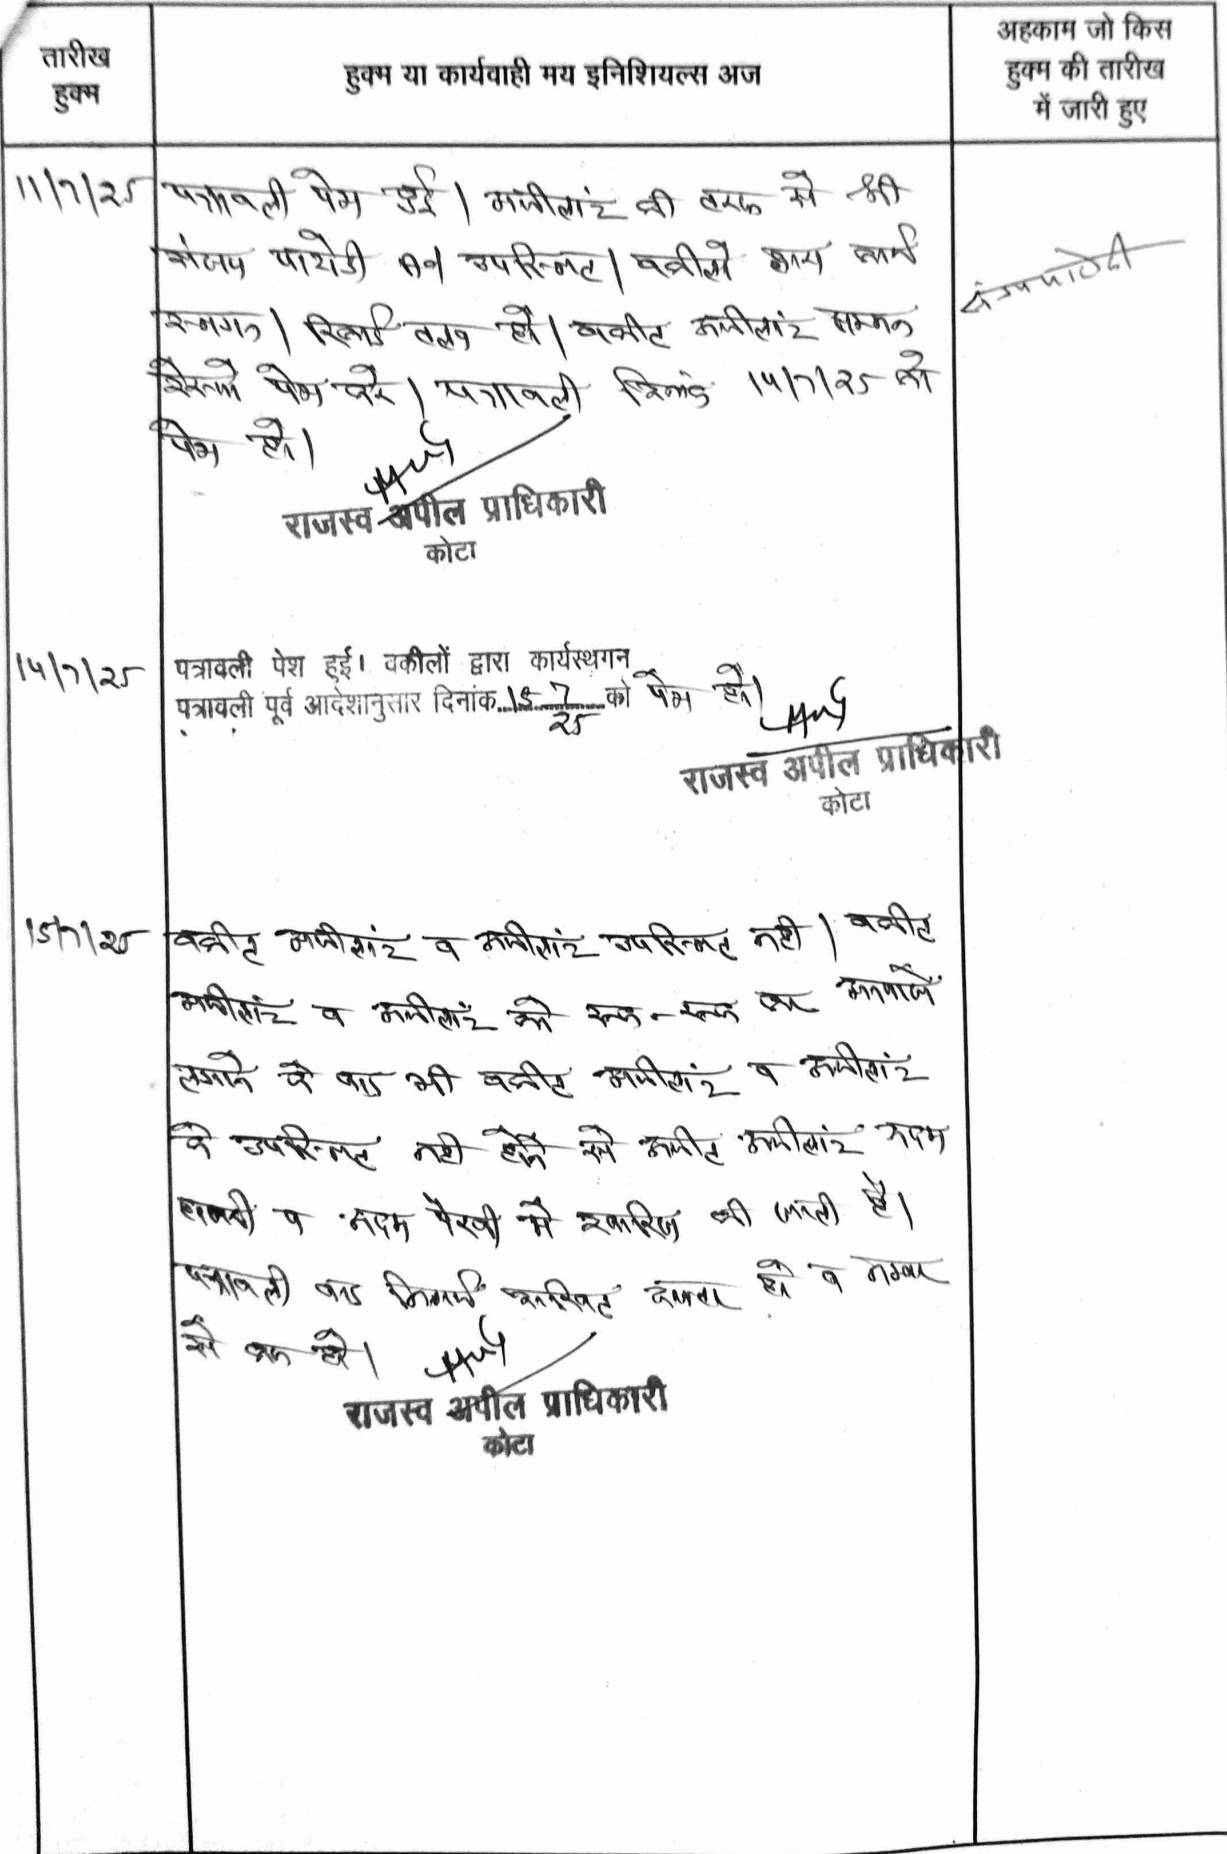 तारीख
हुक्म
हुक्म या कार्यवाही मय इनिशियल्स अज
अहकाम जो किस
हुक्म की तारीख
में जारी हुए
11/7/25 पत्रावली पेश हुई। अपीलांट की तरफ से श्री
संजय पारोडी Adv उपस्थित। वकीलो द्वारा कार्य
स्थगन। रिकार्ड तलब हो। वकील अपीलांट सम्मन
पेश करे। पत्रावली दिनांक 14/7/25 को
पेश हो।
राजस्व अपील प्राधिकारी
कोटा
14/7/25 पत्रावली पेश हुई। वकीलों द्वारा कार्यस्थगन
पत्रावली पूर्व आदेशानुसार दिनांक 15 7/25 को पेश हो।
राजस्व अपील प्राधिकारी
कोटा
15/7/25 वकील अपीलांट व अपीलांट उपस्थित नही। वकील
अपीलांट व अपीलांट को रुक-रुक कर आवाजें
लगाने के बाद भी वकील अपीलांट व अपीलांट
के उपस्थित नही होने से अपील अपीलांट अदम
हाजरी व अदम पैरवी मे खारिज की जाती है।
पत्रावली बाद निर्णय दाखिल दफ्तर हो व नम्बर
से कम हो।
राजस्व अपील प्राधिकारी
कोटा